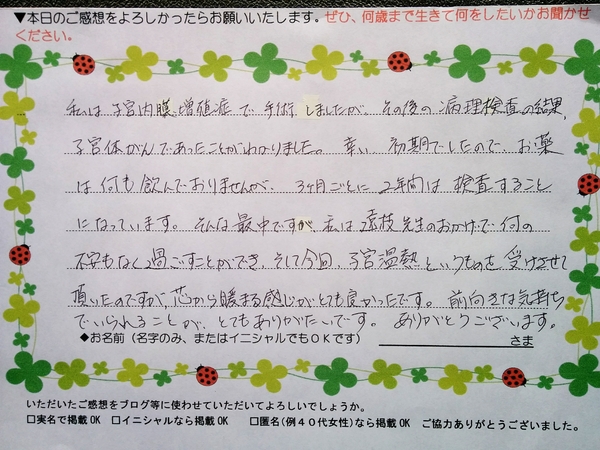 ▼本日のご感想をよろしかったらお願いいたします。ぜひ、何歳まで生きて何をしたいかお聞かせ
ください。
私は子宮内膜増殖症で手術しましたが、その後の病理検査の結果、
子宮体がんであったことがわかりました。幸い、初期でしたので、お薬
は何も飲んでおりませんが、3ヶ月ごとに2年間は検査すること
になっています。そんな最中ですが、私は遠枝先生のおかげで何の
不安もなく過ごすことができ、そして今回、子宮温熱というものを受けさせて
頂いたのですが、芯から暖まる感じがとても良かったです。前向きな気持ち
でいられることが、とてもありがたいです。ありがとうございます。
◆お名前（名字のみ、またはイニシャルでもＯＫです）　さま
いただいたご感想をブログ等に使わせていただいてよろしいでしょうか。
□実名で掲載 OK　□イニシャルなら掲載 OK　□匿名(例４０代女性)なら掲載 OK　ご協力ありがとうございました。